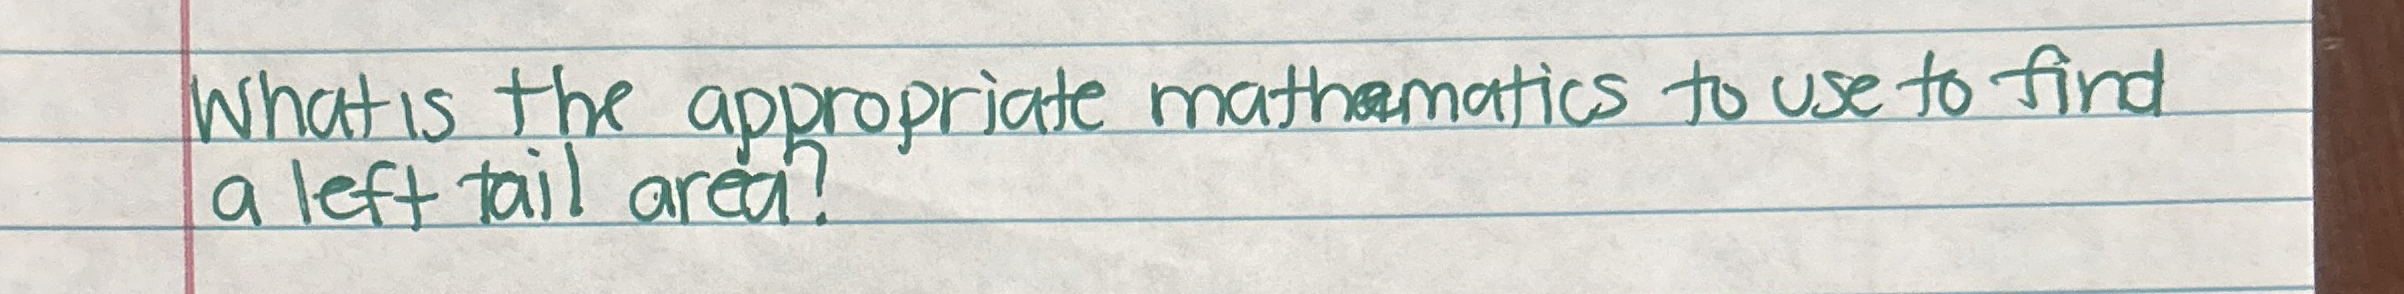 What is the appropriate mathematics to use to find
a left tail area?